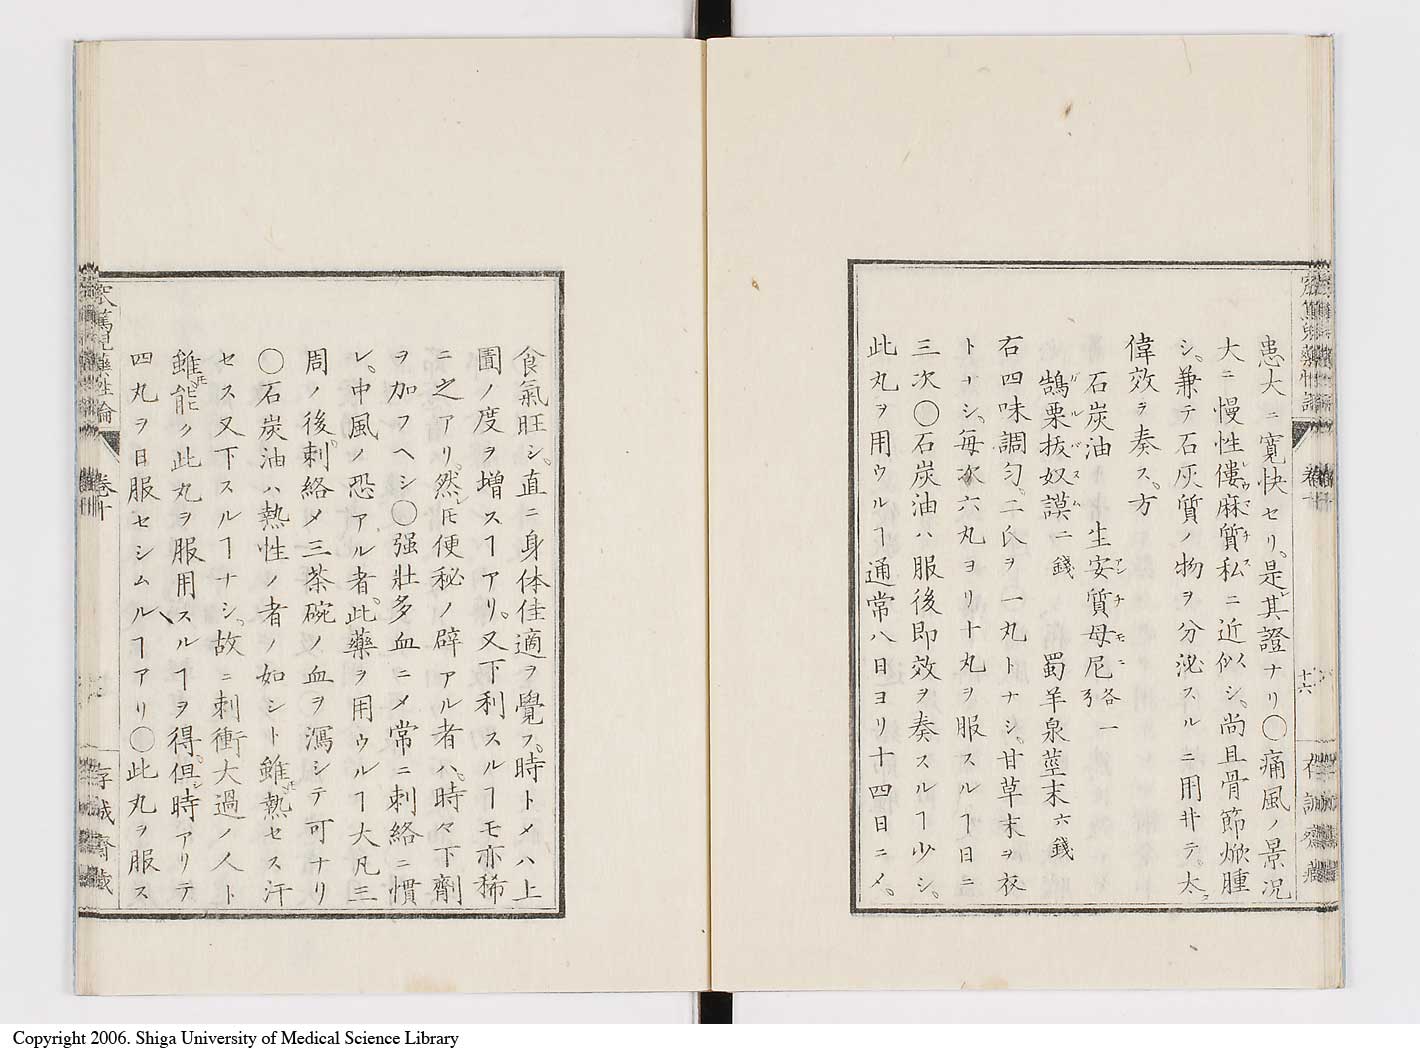 患大ニ寛快セリ。是其證ナリ〇痛風ノ景況
大ニ慢性僂麻質私ニ近似シ。尚且骨節焮腫
シ。兼テ石灰質ノ物ヲ分泌スルニ用井テ。太
偉效ヲ奏ス。方
石炭油 生安質母尼 各一弓
鵠栗抜奴謨二錢 蜀羊泉莖末六錢
右四味調勻。二氏ヲ一丸トナシ。甘草末ヲ衣
トナシ。毎次六丸ヨリ十丸ヲ服スルヿ日ニ
三次〇石炭油ハ服後即效ヲ奏スルヿ少シ。
此丸ヲ用ウルヿ通常八日ヨリ十四日ニメ。
十六
食氣旺シ。直ニ身体佳適ヲ覺フ。時トメハ上
圊ノ度ヲ增スヿアリ。又下利スルヿモ亦稀
ニ之アリ。然𪜈便秘ノ辟アル者ハ。時々下劑
ヲ加フヘシ〇强壯多血ニメ常ニ刺絡ニ慣
レ。中風ノ恐アル者。此藥ヲ用ウルヿ大凡三
周ノ後。刺絡メ三茶碗ノ血ヲ瀉シテ可ナリ
〇石炭油ハ熱性ノ者ノ如シト雖𪜈熱セス汗
セス又下スルヿナシ。故ニ刺衝大過ノ人ト
雖𪜈能ク此丸ヲ服用スルヿヲ得。但シ時アリテ
四丸ヲ日服セシムルヿアリ〇此丸ヲ服ス
窊篤兒藥性論
卷十
存誠齋藏
Copyright 2006. Shiga University of Medical Science Library